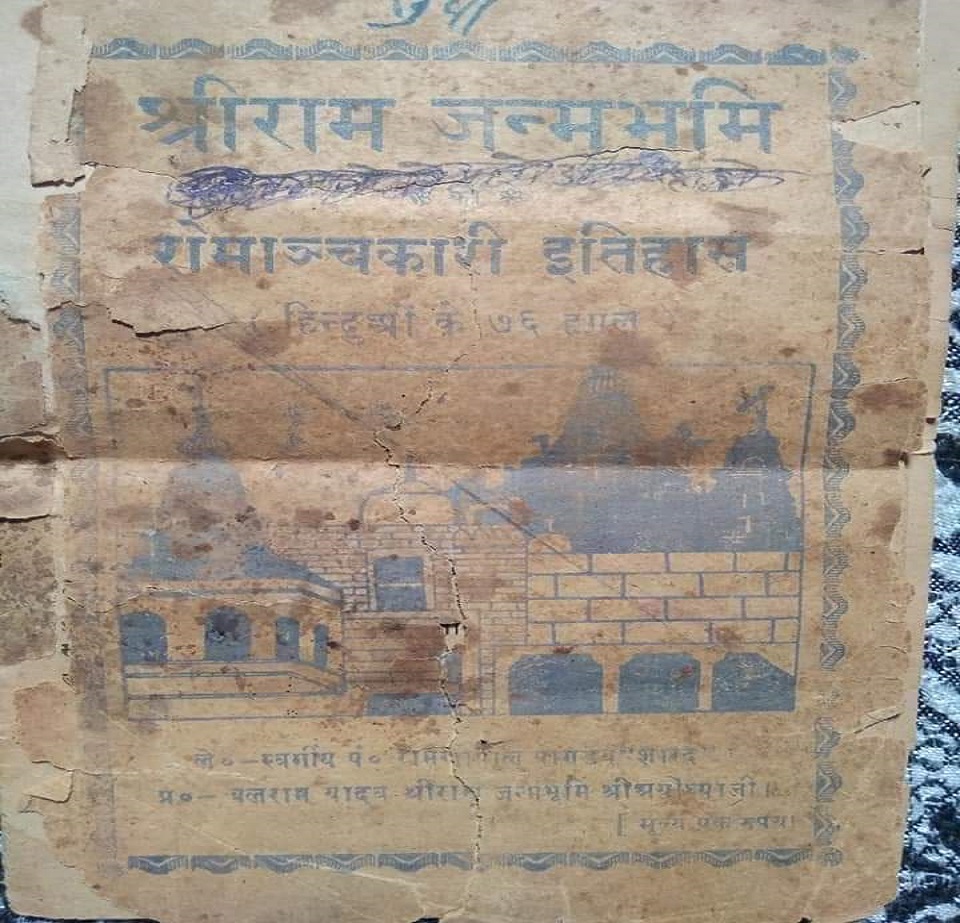 श्रीराम जन्मभूमि
रोमाञ्चकारी इतिहास
हिन्दुओं के ७६ हमले
ले०—स्वर्गीय पं० रामगोपाल पाण्डेय "शारद"
प्र०— बलराम यादव श्रीराम जन्मभूमि श्रीअयोध्याजी।
[ मूल्य एक रुपया